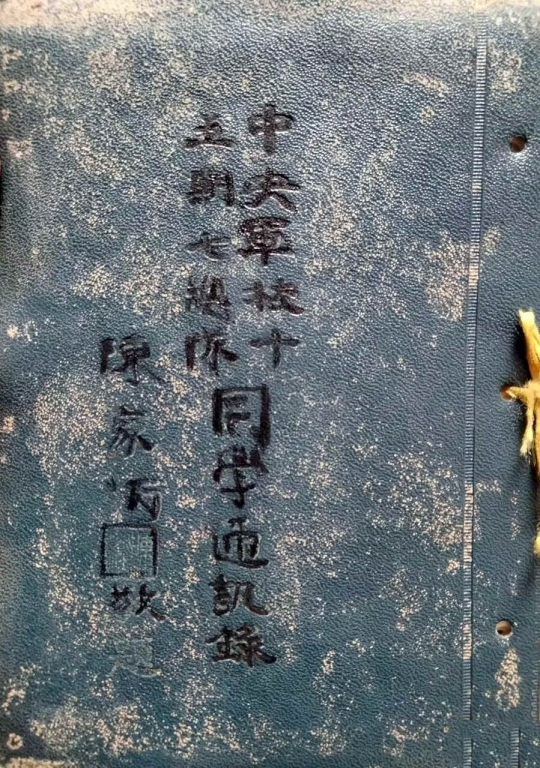 中央軍校十
五期七總隊
同學通訊錄
陳家 敬題